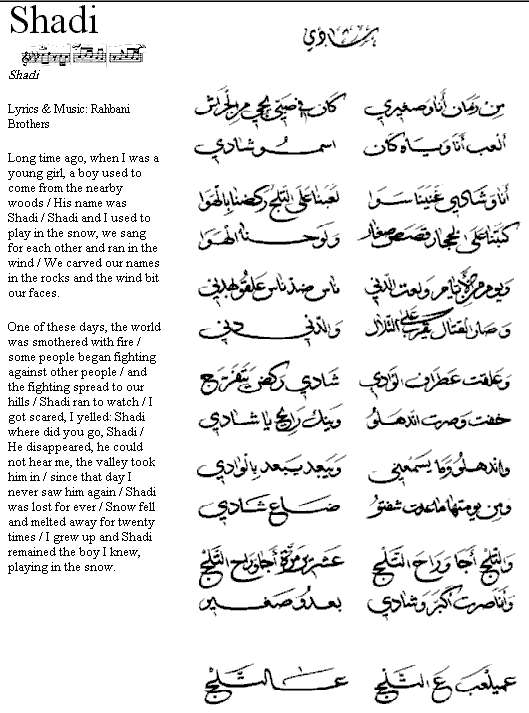 Shadi
شادي
Shadi
Lyrics & Music: Rahbani
Brothers
Long time ago, when I was a
young girl, a boy used to
come from the nearby
woods / His name was
Shadi / Shadi and I used to
play in the snow, we sang
for each other and ran in the
wind / We carved our names
in the rocks and the wind bit
our faces.
One of these days, the world
was smothered with fire /
some people began fighting
against other people / and
the fighting spread to our
hills / Shadi ran to watch / I
got scared, I yelled: Shadi
where did you go, Shadi /
He disappeared, he could
not hear me, the valley took
him in / since that day I
never saw him again / Shadi
was lost for ever / Snow fell
and melted away for twenty
times / I grew up and Shadi
remained the boy I knew,
playing in the snow.
من زمان أنا وصغيري كان في صبي يجي من الحراش
ألعب أنا وياه كان اسمو شادي
أنا وشادي غنينا سوا لعبنا على التلج ركضنا بالهوا
كتبنا على لحجار قصص صغار ولوحنا الهوا
ويوم من الأيام ولعت الدني ناس ضد ناس علقو بهدني
وصار القتال يقرب على التلال والدني دني
وعلقت عطراف الوادي شادي ركض يتفرج
خفت وصرت اندهلو وينك رايح يا شادي
واندهلو وما يسمعني ويبعد يبعد بالوادي
ومن يومتها ما عدت شفتو ضاع شادي
والتلج أجا وراح التلج عشرين مرة أجا وراح التلج
وأنا صرت أكبر وشادي بعدو صغير
عميلعب ع التلج عا التلج